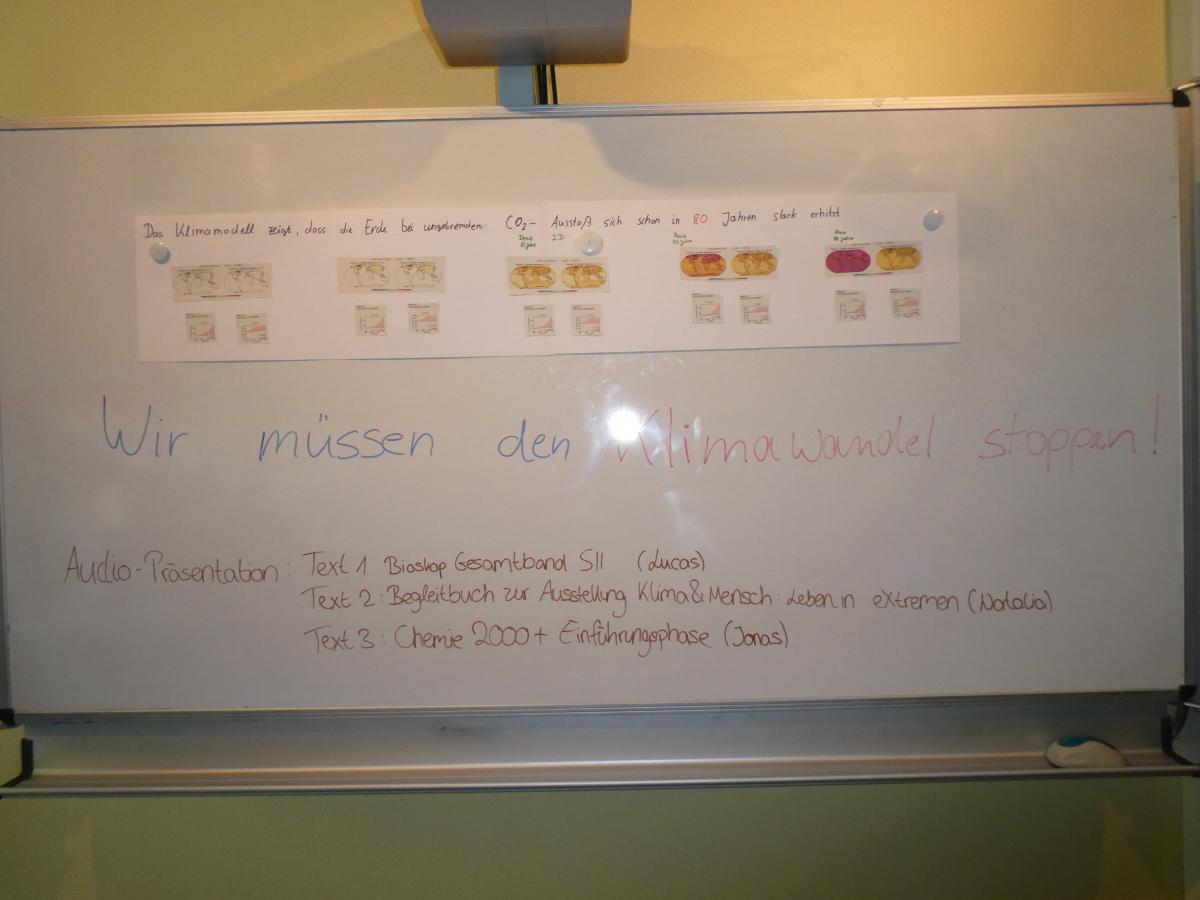 Das Klimamodell zeigt, dass die Erde bei ungebremstem CO₂- Ausstoß sich schon in 80 Jahren stark erhitzt
Wir müssen den Klimawandel stoppen!
Audio-Präsentation: Text 1: Bioskop Gesamtband SII (Lucas)
Text 2: Begleitbuch zur Ausstellung Klima&Mensch: Leben in eXtremen (Natalia)
Text 3: Chemie 2000+ Einführungsphase (Jonas)